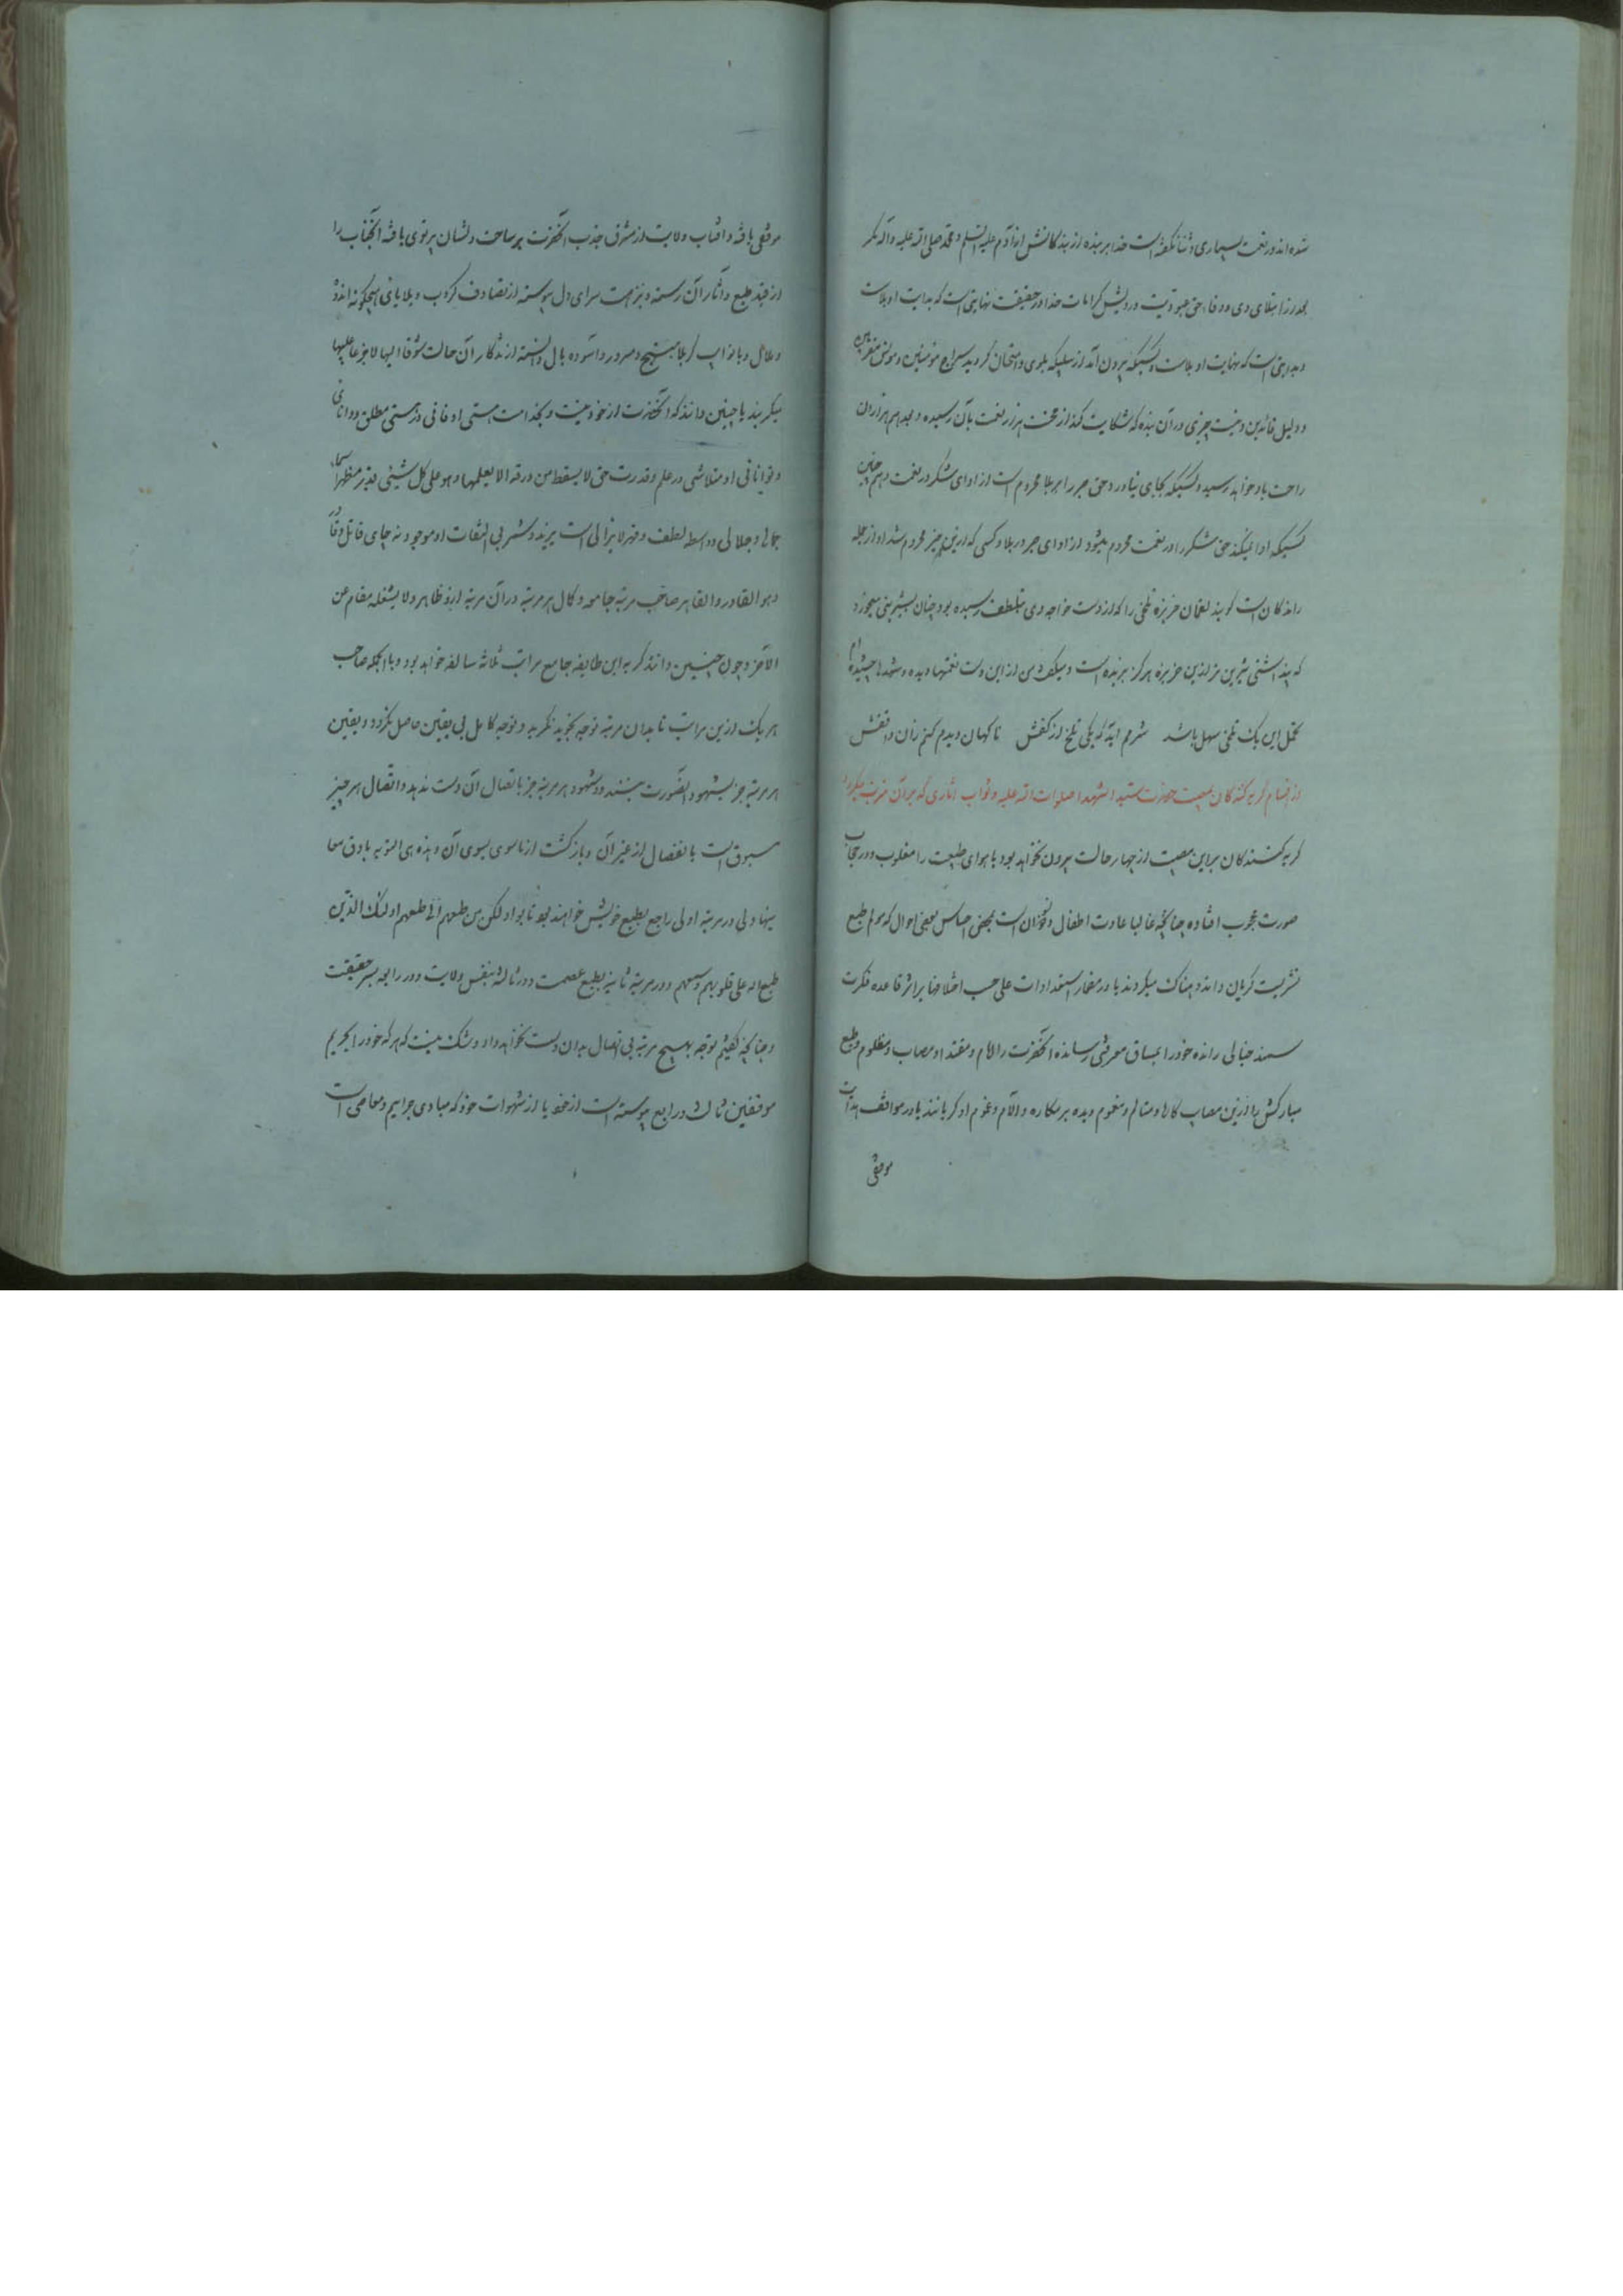 شده اند در نعمت بسیاری و ثنا نگفته است خدا بر بنده از بندگانش از آدم علیه السلم و محمد صلی الله علیه و آله مگر
بعد از ابتلای وی و وفاء حق عبودیت در وی پس کرامات خدا در حقیقت نهایتی است که بدایت او بلاست
و بدایتی است که نهایت او بلاست و کسیکه بیرون آمد از سبیکه بلوی و امتحان گردید سراج مؤمنین و مونس مقربین
و دلیل قائدین و نیست چیزی در آن بنده که شکایت کند از محنت هزار نعمت بآن رسیده و بعد هم هزاران
راحت باو خواهد رسید و کسیکه بجای نیاورد حق صبر را بر بلا محروم است از ادای شکر در نعمت و هم چنین
کسیکه ادا نمیکند حق شکر را در نعمت محروم میشود از ادای صبر در بلا و کسی که ازین چیز محروم شد او از جمله
رانده کان است گویند لقمان خربزه تلخی را که از دست خواجه وی بتلطف رسیده بود چنان بشیرینی میخورد
که پنداشتی شیرین تر ازین خربزه هرگز نبریده است و میگفت من از این دست نعمتها دیده و شهدها چشیده‌ام
تحمل این یک تلخی سهل باشد شرمم آید که یکی تلخ از کفش ناگهان دیدم کنم زان واقفش
در اقسام گریه کننده کان مصیبت حضرت سید الشهدا صلوات الله علیه و ثواب آثاری که بر آن مترتب میگردد
گریه کنندکان بر این مصیبت از چهار حالت بیرون نخواهد بود یا هوای طبیعت را مغلوب و در حجاب
صورت محجوب افتاده چنانچه غالبا عادت اطفال و نسوان است بمحض احساس بعضی احوال که مولم طبع
بشریست گریان و اندوهناک میگردند یا در مضمار استعدادات علی حسب اختلافها بر اثر قاعده فکرت
سمند خیالی رانده خود را بمساق معرفتی رسانده آنحضرت را امام و مقتدا و مصاب و مظلوم و طبع
مبارکش را ازین مصاب کارها و متالم و مغموم دیده بر مکاره و آلام و غموم او گریانند یا در مواقف هدایت
موقفی
موقفی یافته و آفتاب ولایت از مشرق جذب آنحضرت بر ساحت دلشان پرتوی یافته آنجناب را
از قید طبع و آثار آن رسته و نزهت سرای دل پیوسته از تصادف کروب و بلایا فی هیچگونه اندوه
و ملال و با نوایب کربلا مبتهج و مسرور و آسوده بال دانسته از تذکار آن حالت شوقا الیها لا جزعا علیها
میگریند یا چنین دانند که آنحضرت از خود نیست و بخداست هستی او فانی در هستی مطلق و دانائی
و توانائی او متلاشی در علم و قدرت حق لا یسقط من ورقة الا یعلمها و هو علی کل شیئی قدیر مظهر اسماء
جمالی و جلالی و واسطه لطف و قهر لا یزالی است یزید و شمر بی التفات او موجود نه چای قاتل و قادر
و هو القادر و القاهر صاحب مرتبه جامعه و کمال هر مرتبه در آن مرتبه ازو ظاهر و لا یشغله مقام عن
الآخر و چون چنین دانند گریه این طایفه جامع مراتب ثلاثه سالفه خواهد بود و با الجمله صاحب
هر یک ازین مراتب تا بدان مرتبه توجه بجوید نگرید و توجه کامل بی یقین حاصل نگردد و یقین
هر مرتبه جز بشهود آنصورت نبندد و شهود هر مرتبه جز باتصال آن دست ندهد و اتصال هر چیز
مسبوق است بانفصال از غیر آن و بازگشت از ماسوی بسوی آن و هذه هی التوبه باوق معا
نیها ولی در مرتبه اولی راجع بطبع خویش خواهند بود تابوا و لکن من طبعهم الی طبعهم اولئک الذین
طبع الله علی قلوبهم و سمعهم و در مرتبه ثانیه بطبع عصمت و در ثالثه بنفس ولایت و در رابعه بسر حقیقت
و چنانچه گفتیم توجه بهیچ مرتبه بی اتصال بدان دست نخواهد داد و شک نیست که هر که خود را بحریم
موقفین ثالث و رابع پیوسته است از خود یا از شهوات خود که مبادی جرایم و معاصی است